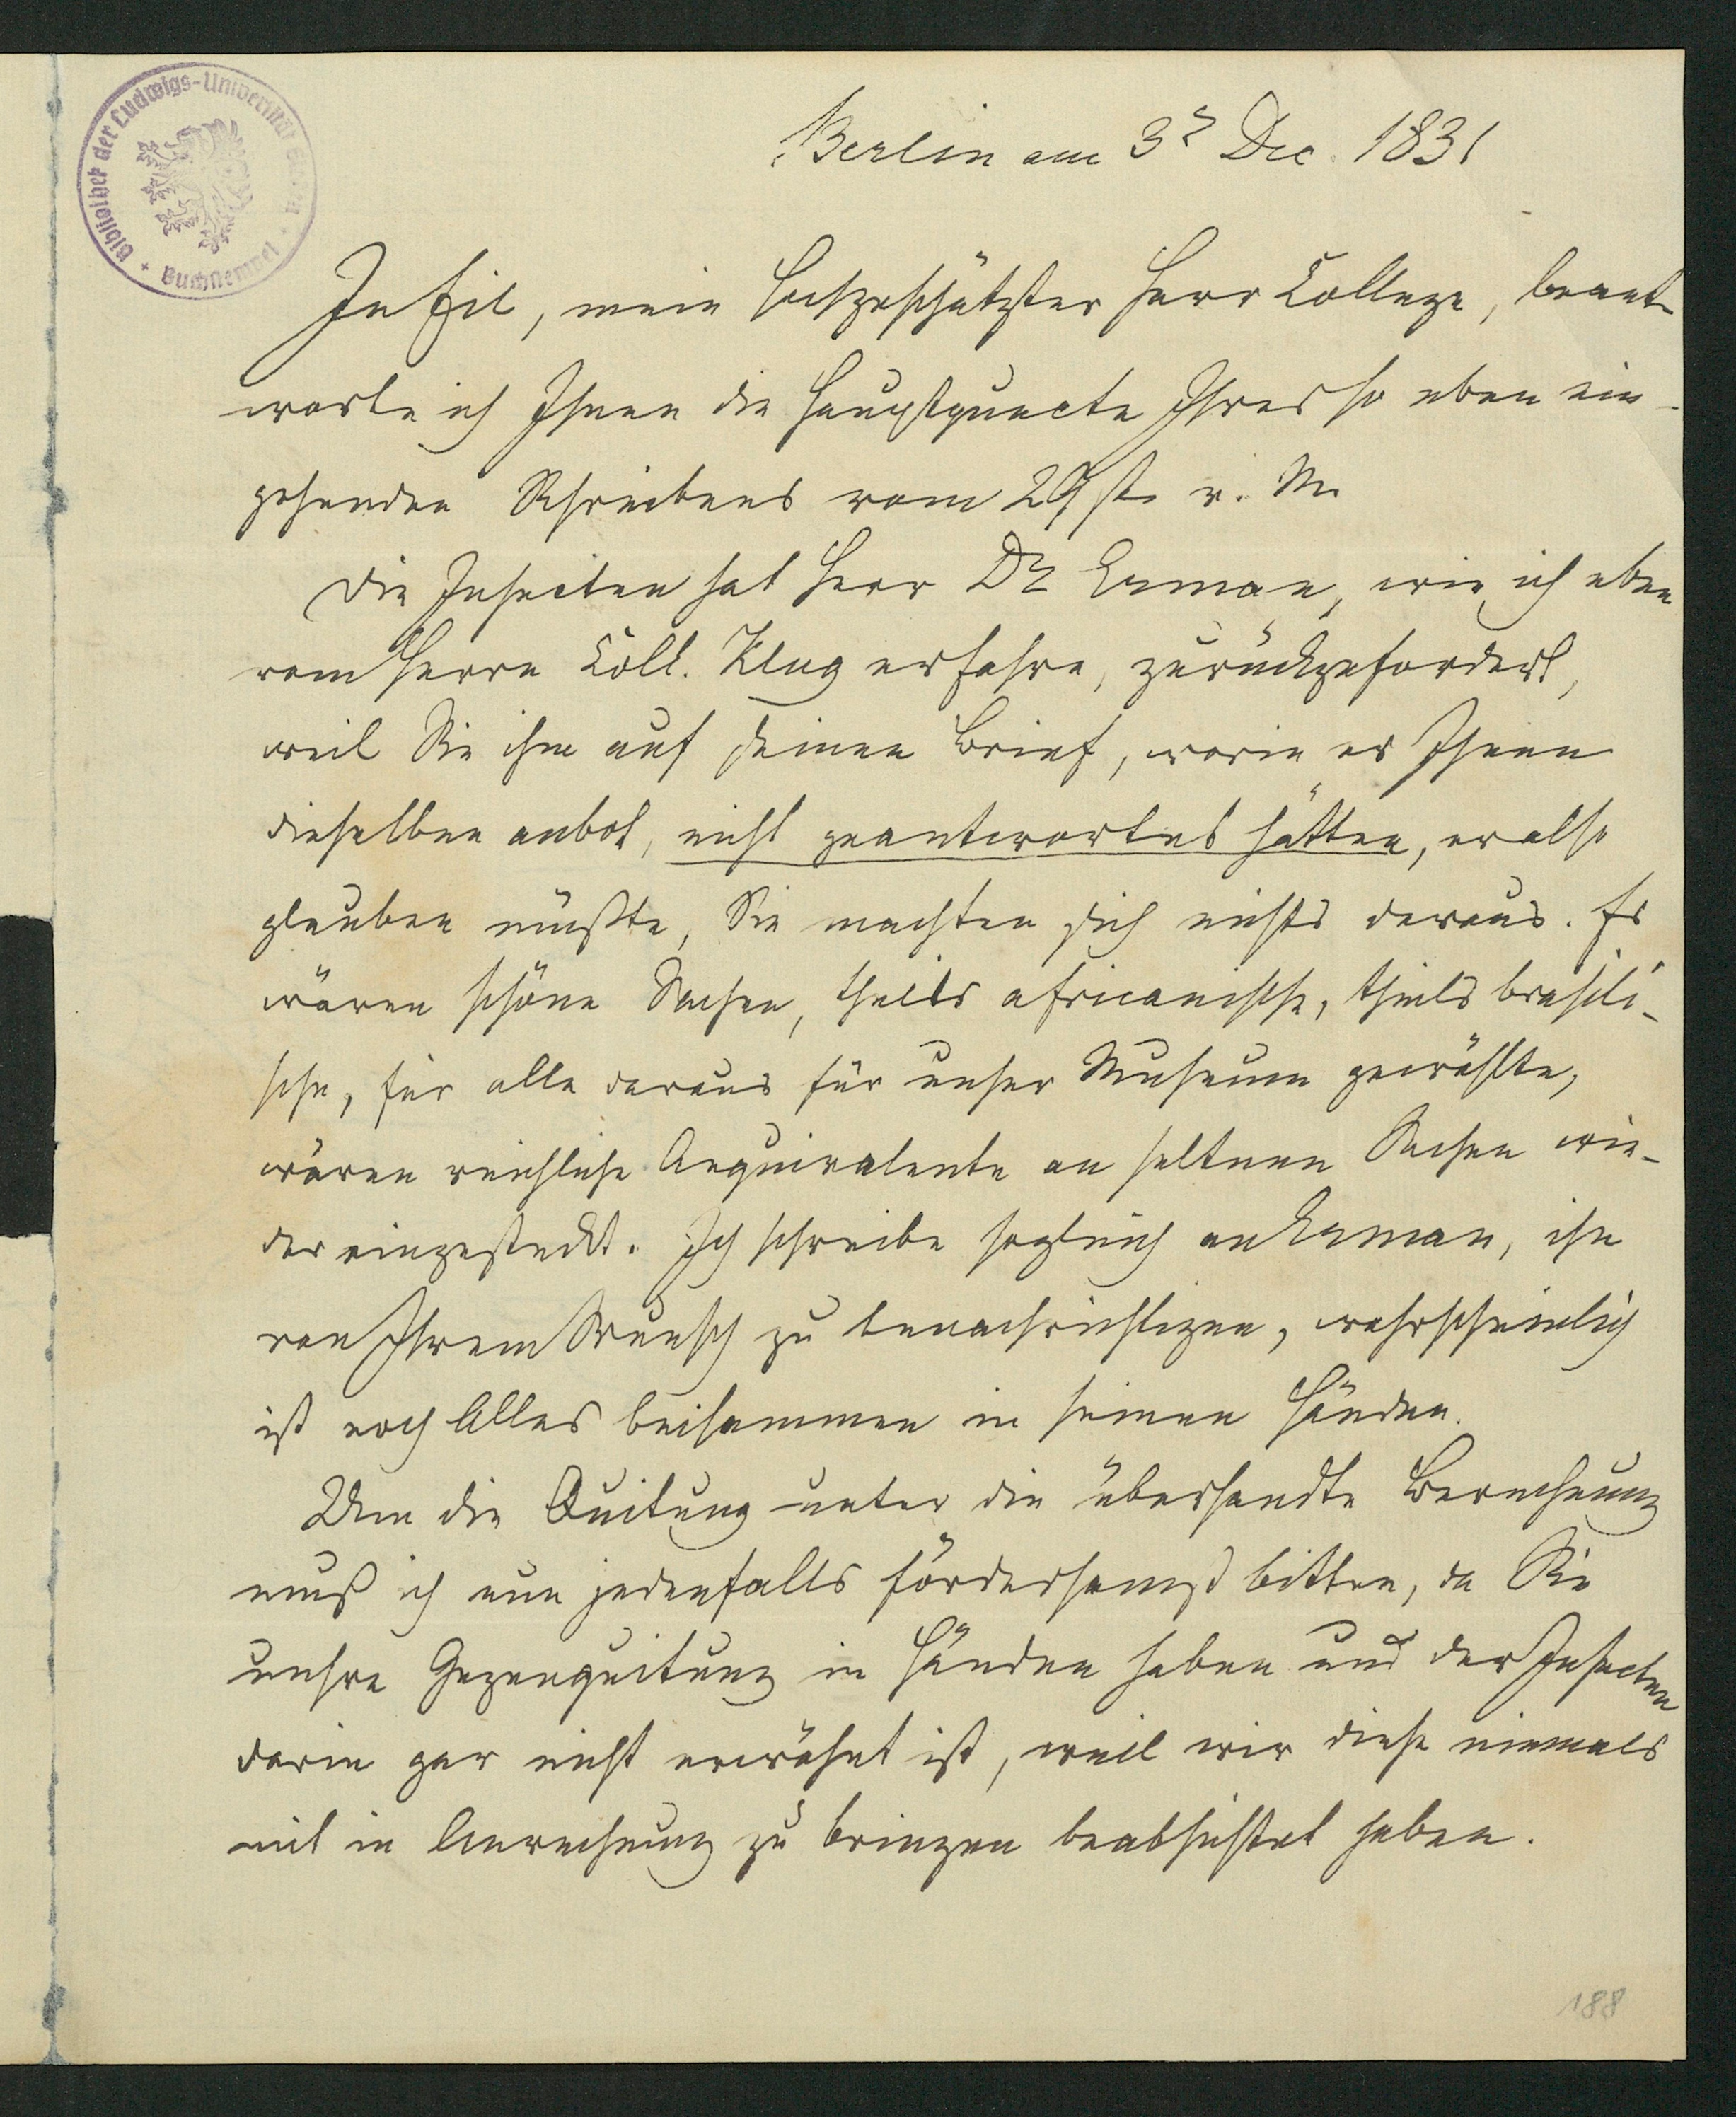 Bibliothek der Ludwigs-Universität Giessen
* Buchstempel *
Berlin am 3ʳ Dec. 1831
In Eil, mein hochgeschätzter Herr College, beant-
worte ich Ihnen die Hauptpuncte Ihres so eben ein-
gehenden Schreibens vom 29st. v. M.
Die Insecten hat Herr Dr Erman, wie ich eben
vom Herrn Coll. Klug erfahre, zurückgefordert,
weil Sie ihm auf seinen Brief, worin er Ihnen
dieselben anbot, nicht geantwortet hätten, er also
glauben müßte, Sie machten sich nichts daraus. Es
wären schöne Sachen, theils africanische, theils brasili-
sche, für alle daraus für unser Museum gewählte,
wären reichliche Aequivalente an seltnen Sachen wie-
der eingesteckt. Ich schreibe sogleich an Erman, ihn
von Ihrem Wunsch zu benachrichtigen, wahrscheinlich
ist noch Alles beisammen in seinen Händen.
Um die Quitung unter die übersandte Berechnung
muß ich nun jedenfalls fördersamst bitten, da Sie
unsre Gegenquitung in Händen haben und der Insecten
darin gar nicht erwähnt ist, weil wir diese niemals
mit in Anrechnung zu bringen beabsichtet haben.
188